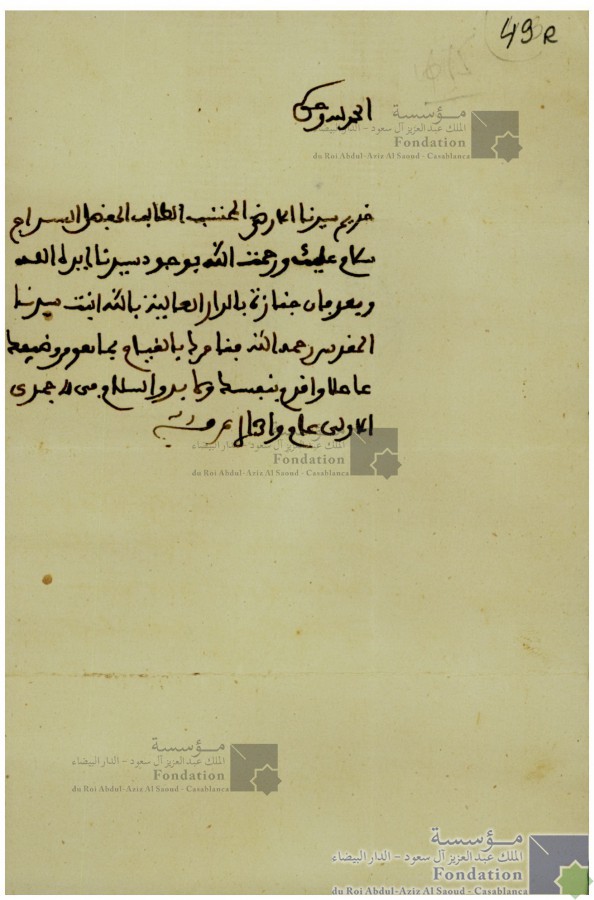 49 R
الحمد لله وحده
مؤسسة
الملك عبد العزيز آل سعود - الدار البيضاء
Fondation
du Roi Abdul-Aziz Al Saoud - Casablanca
خديم سيدنا الارضى المحتسب الطالب المفضل السراج
سلام عليك ورحمت الله بوجود سيدنا ايده الله
وبعد جنازة بالدار العالية بالله سيدنا
المقدس رحمه الله بالقيام
عاجلا بنفسك ولا بد والسلام في جمدى
الاولى عام
مؤسسة
الملك عبد العزيز آل سعود - الدار البيضاء
Fondation
du Roi Abdul-Aziz Al Saoud - Casablanca
مؤسسة
الملك عبد العزيز آل سعود - الدار البيضاء
Fondation
du Roi Abdul-Aziz Al Saoud - Casablanca
مؤسسة
الملك عبد العزيز آل سعود - الدار البيضاء
Fondation
du Roi Abdul-Aziz Al Saoud - Casablanca